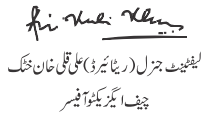 Ali Kuli Khan
لیفٹیننٹ جنرل (ریٹائیرڈ) علی قلی خان خٹک
چیف ایگزیکٹو آفیسر